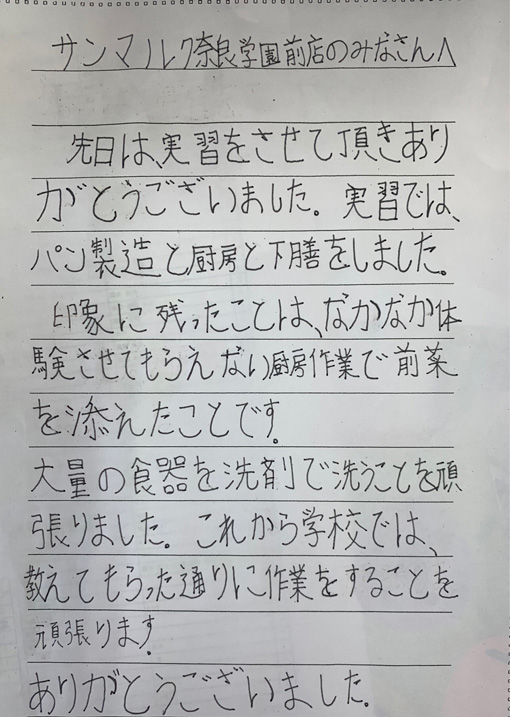 サンマルク奈良学園前店のみなさんへ
先日は、実習をさせて頂きあり
がとうございました。実習では、
パン製造と厨房と下膳をしました。
印象に残ったことは、なかなか体
験させてもらえない厨房作業で前菜
を添えたことです。
大量の食器を洗剤で洗うことを頑
張りました。これから学校では、
教えてもらった通りに作業をすることを
頑張ります。
ありがとうございました。